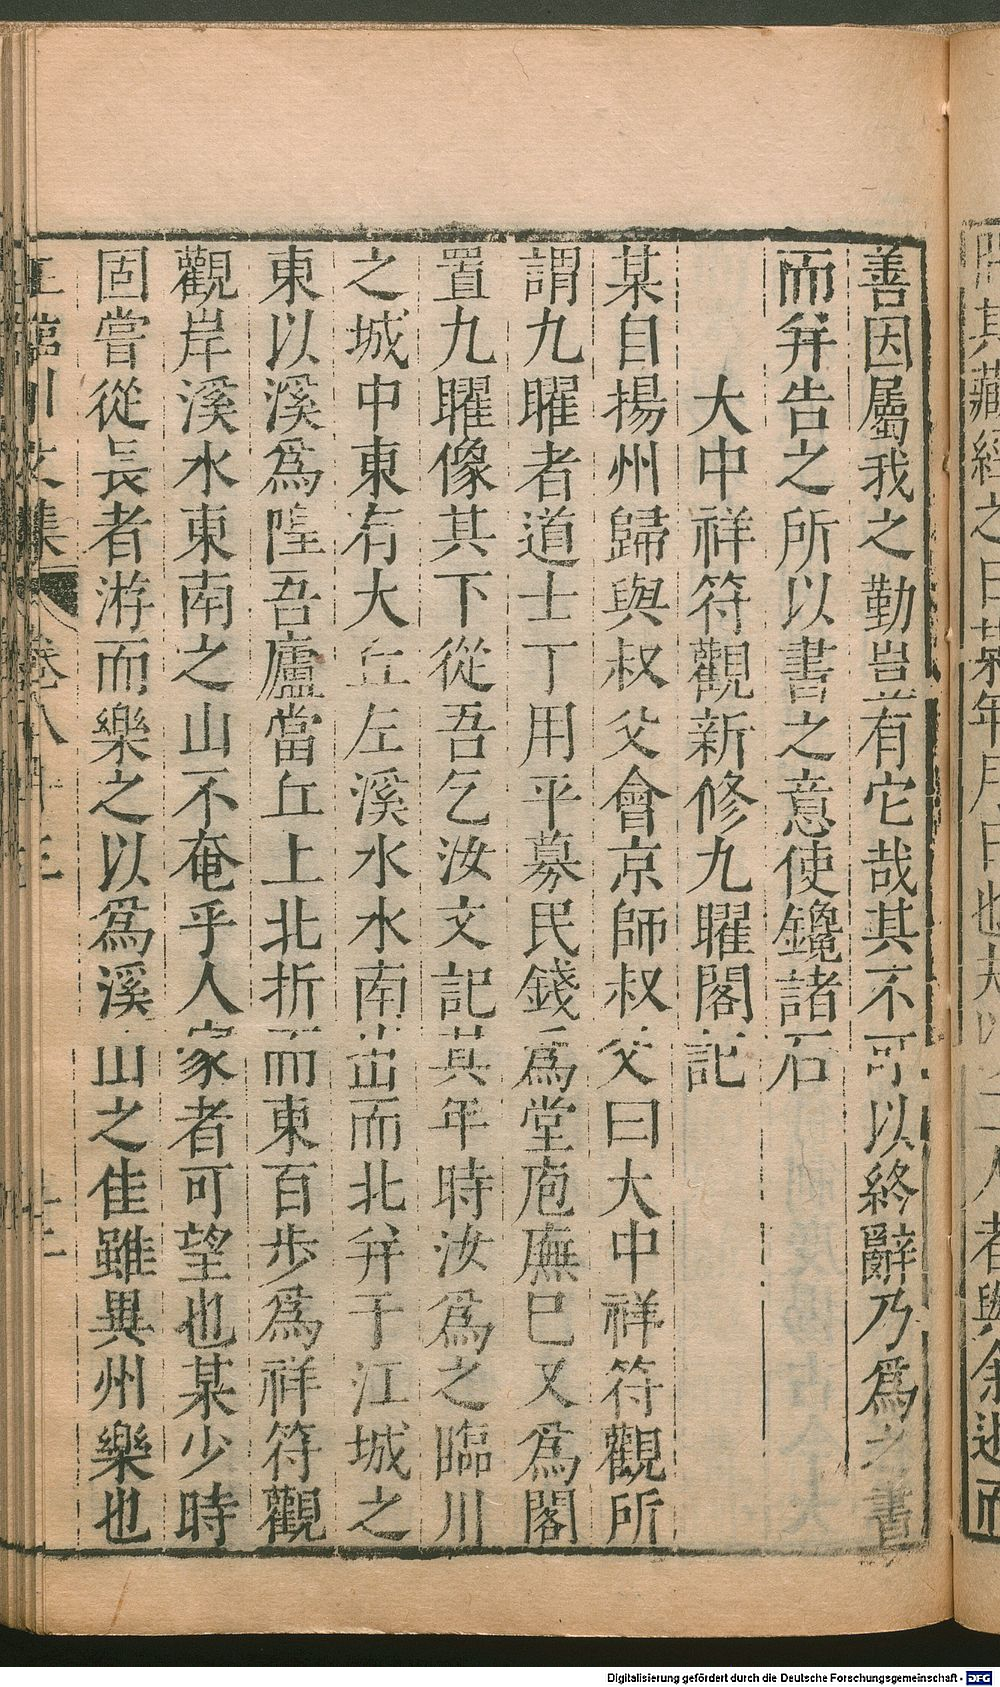 善因屬我之勤豈有它哉其不可以終辭乃爲之書
而幷告之所以書之意使鑱諸石
大中祥符觀新修九曜閣記
某自揚州歸與叔父會京師叔父曰大中祥符觀所
謂九曜者道士丁用平募民錢爲堂庖廡已又爲閣
置九曜像其下從吾乞汝文記其年時汝爲之臨川
之城中東有大丘左溪水水南出而北幷于江城之
東以溪爲隍吾廬當丘上北折而東百步爲祥符觀
觀岸溪水東南之山不奄乎人家者可望也某少時
固嘗從長者游而樂之以爲溪山之佳雖異州樂也
Digitalisierung gefördert durch die Deutsche Forschungsgemeinschaft - DFG